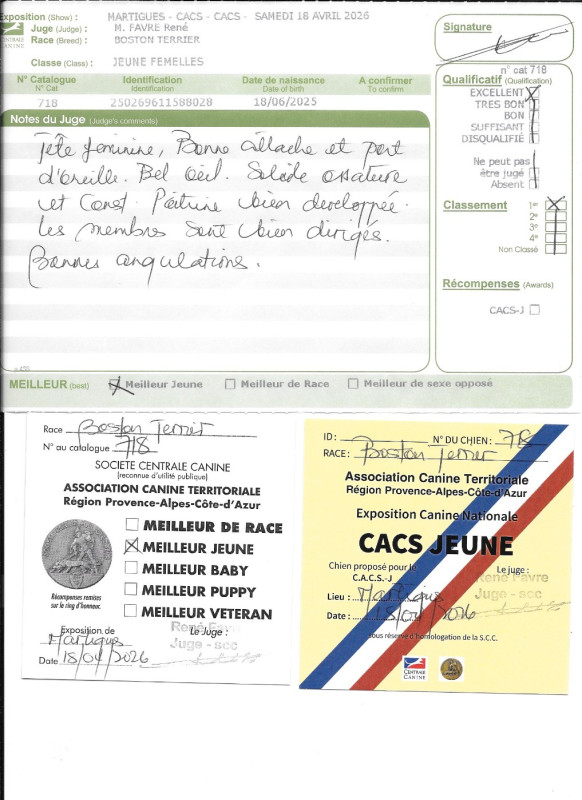 Exposition (Show) : MARTIGUES - CACS - CACS - SAMEDI 18 AVRIL 2026
Juge (Judge) : M. FAVRE René
Race (Breed) : BOSTON TERRIER
CENTRALE CANINE
Classe (Class) : JEUNE FEMELLES
N° Catalogue N° Cat
Identification Identification
Date de naissance Date of birth
A confirmer To confirm
718 250269611588028 18/06/2025
Notes du Juge (Judge's comments)
Tête féminine, Bonne attache et port
d'oreille. Bel œil. Solide ossature
et Const. Poitrine bien developpée.
les membres sont bien dirigés.
Bonnes angulations.
Signature
n° cat 718
Qualificatif (Qualification)
EXCELLENT
TRES BON
BON
SUFFISANT
DISQUALIFIÉ
Ne peut pas
être jugé
Absent
Classement 1er
2e
3e
4e
Non Classé
Récompenses (Awards)
CACS-J
MEILLEUR (best) Meilleur Jeune Meilleur de Race Meilleur de sexe opposé
Race Boston Terrier
N° au catalogue 718
SOCIETE CENTRALE CANINE
(reconnue d'utilité publique)
ASSOCIATION CANINE TERRITORIALE
Région Provence-Alpes-Côte-d'Azur
MEILLEUR DE RACE
MEILLEUR JEUNE
MEILLEUR BABY
MEILLEUR PUPPY
MEILLEUR VETERAN
Récompenses remises
sur le ring d'honneur.
Exposition de Le Juge :
Martigues
René Favre
Juge - scc
Date 18/04/2026
ID : N° DU CHIEN : 718
RACE : Boston Terrier
Association Canine Territoriale
Région Provence-Alpes-Côte-d'Azur
Exposition Canine Nationale
CACS JEUNE
Chien proposé pour le Le juge :
C.A.C.S.-J
René Favre
Juge - scc
Lieu : Martigues
Date : 18/04/2026
sous réserve d'homologation de la S.C.C.
CENTRALE
CANINE